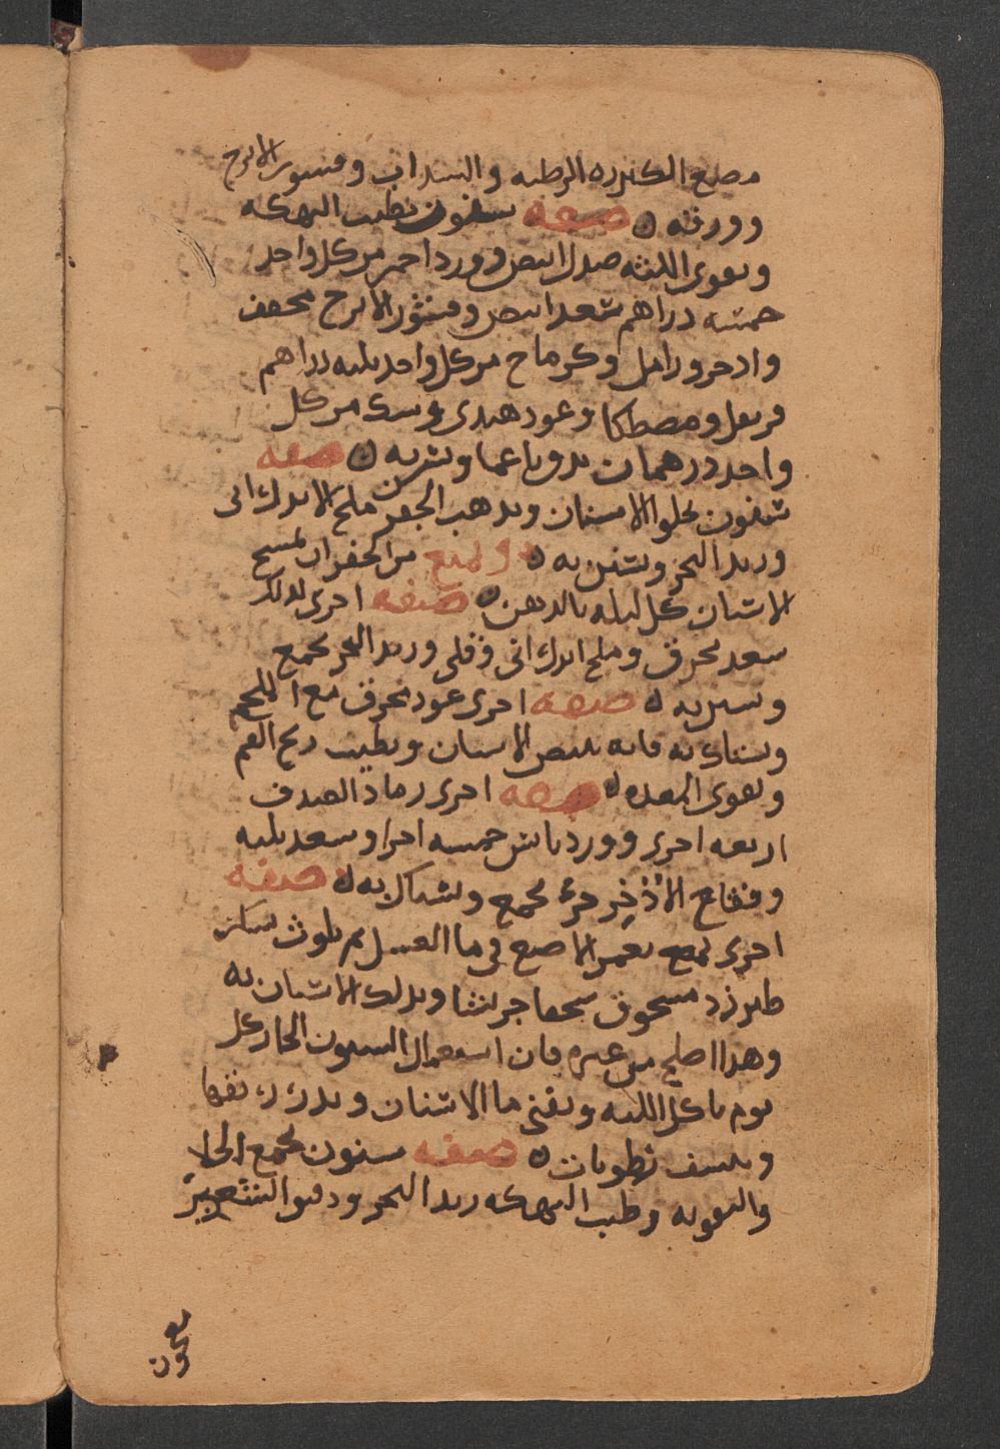 مضغ الكزبره الرطبه والسداب وقشور الاترج
وورقه ۞ صفه سفوف يطيب النهكه
ويقوى اللثه صندل ابيض وورد احمر من كل واحد
خمسه دراهم سعد ابيض وقشور الاترج مجفف
واذخر ورامل وكزماج من كل واحد ثلثه دراهم
قرنفل ومصطكا وعود هندى وسك من كل
واحد درهمان يدق ناعما ويستن به ۞ صفه
سفوف يجلوا الاسنان ويذهب الحفر ملح الاندرانى
وزبد البحر ويستن به ۞ ولمنع من الحفر ان تمسح
الاسنان كل ليله بالدهن ۞ صفه اخرى لذلك
سعد محرق وملح اندرانى وقلى وزبد البحر يجمع
ويستن به ۞ صفه اخرى عود محرق مع الملح
ويستاك به فانه يبيض الاسنان ويطيب ريح الفم
ويقوى المعده ۞ صفه اخرى رماد الصدف
اربعه اجزا وورد يابس خمسه اجزا وسعد ثلثه
وفقاح الاذخر جزء يجمع ويستاك به ۞ صفه
اخرى تغمس الاصبع فى ما العسل ثم يلوث بسكر
طبرزد مسحوق سحقا جريشا ويدلك الاسنان به
وهذا اصلح من غيره فان استعمال السنون الحار كل
يوم ياكل اللثه ويفنى ما الاسنان
وينشف رطوبات ۞ صفه سنون يجمع الجلا
والتقويه وطيب النهكه زبد البحر ودقيق الشعير
معجون